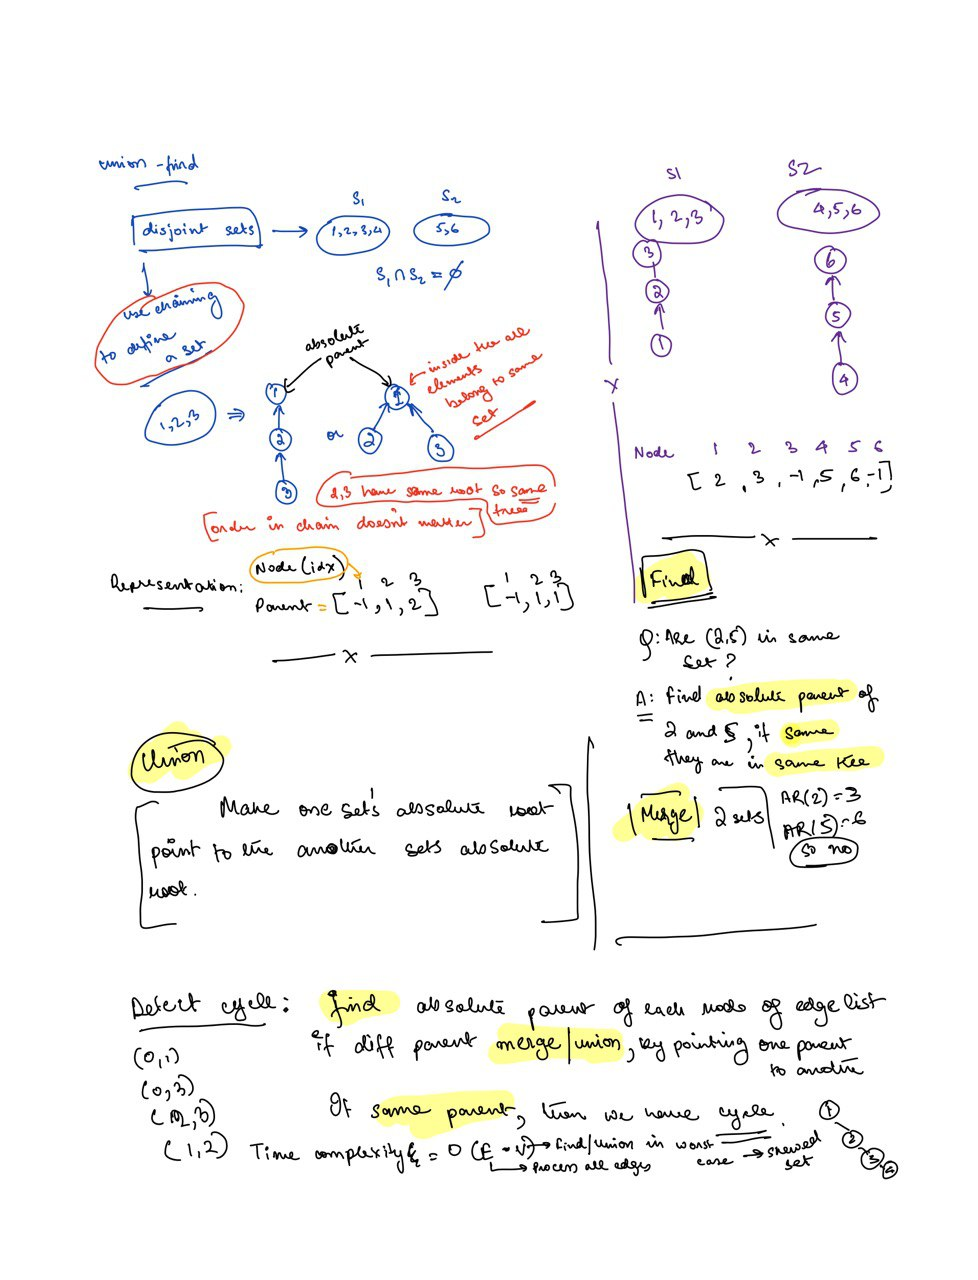 union - find
disjoint sets
S1 S2
1,2,3,4 5,6
S1 ∩ S2 = ϕ
use chaining
to define
a set
absolute
parent
inside tree all
elements
belong to same
set
1,2,3 ⇒
1
2
3
or
1
2 3
2,3 have same root so same
tree
[order in chain doesn't matter]
Representation:
Node (idx)
1 2 3
Parent = [-1, 1, 2]
1 2 3
[-1, 1, 1]
x
S1 S2
1, 2, 3 4,5,6
3 6
2 5
1 4
x
Node 1 2 3 4 5 6
[ 2 , 3, -1, 5, 6, -1]
x
Find
Q: Are (2,5) in same
set ?
A: Find absolute parent of
2 and 5, if same
they are in same tree
Merge 2 sets
AR(2) = 3
AR(5) = 6
so no
Union
Make one set's absolute root
point to the another sets absolute
root.
Detect cycle: find absolute parent of each node of edge list
if diff parent merge/union, by pointing one parent
to another
(0,1)
(0,3)
(1,2)
If same parent, then we have cycle.
Time complexity = O (E * V) → find/union in worst
case → skewed
set
→ process all edges
1
2
3
4